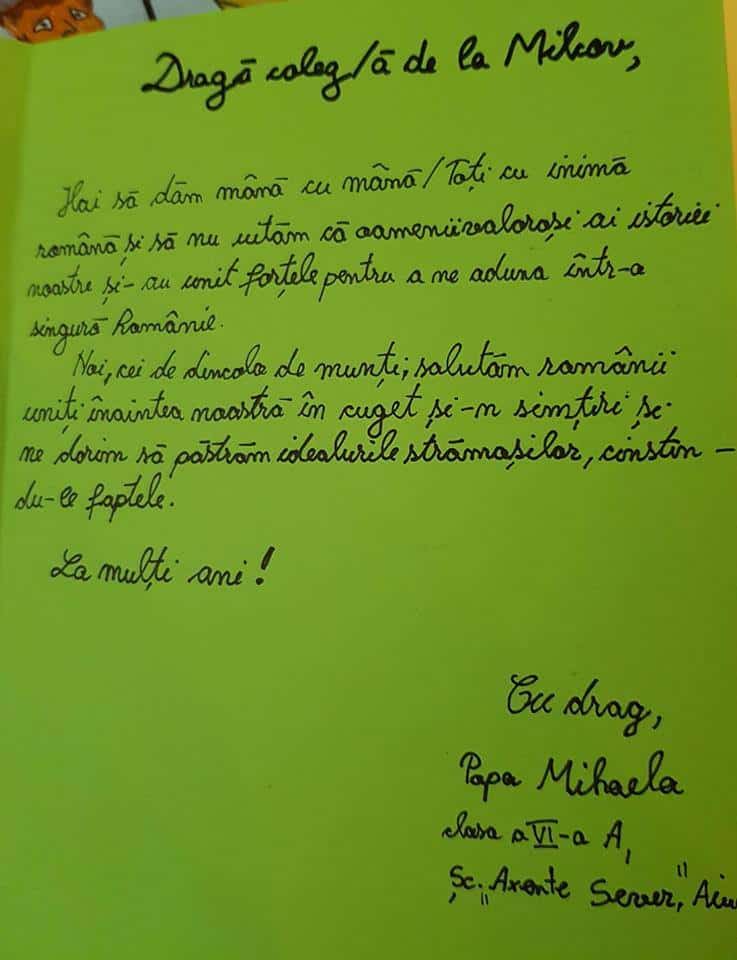 Dragă coleg/ă de la Milcov,
Hai să dăm mână cu mână/Toți cu inimă
română și să nu uităm că oamenii valoroși ai istoriei
noastre și-au unit forțele pentru a ne aduna într-o
singură Românie.
Noi, cei de dincolo de munți, salutăm românii
uniți înaintea noastră în cuget și-n simțiri și
ne dorim să păstrăm idealurile strămoșilor, cinstin-
du-le faptele.
La mulți ani!
Cu drag,
Papa Mihaela
clasa a VI-a A,
Șc. „Axente Sever", Aiu